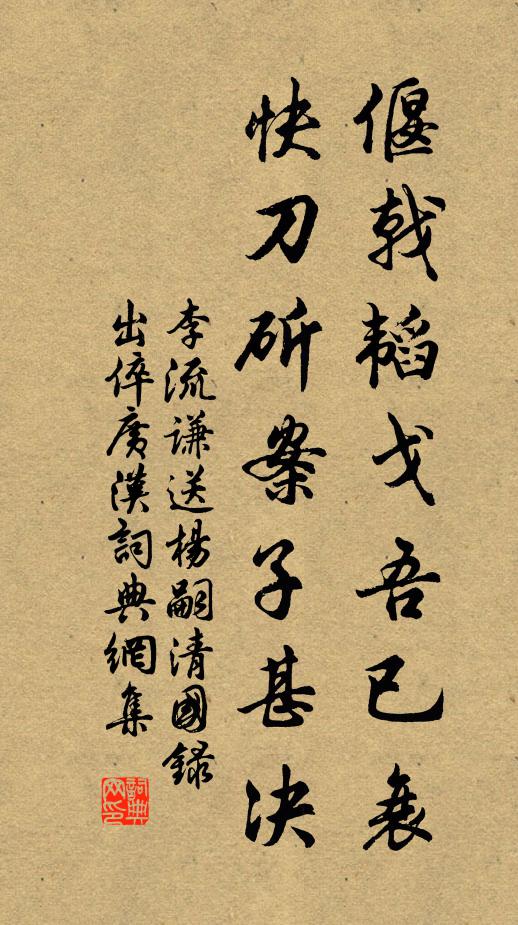 偃戟韬戈吾已衰
快刀斫案子甚决
李流谦送杨嗣清国录
出倅广汉词典網集
詞典網印